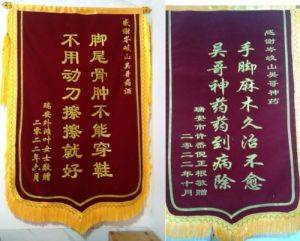 感谢岑岐山吴哥药酒
脚尾骨肿不能穿鞋
不用动刀擦擦就好
瑞安外滩叶女士敬赠
二〇二二年六月
感谢岑岐山吴哥神药
手脚麻木久治不愈
吴哥神药药到病除
瑞安市许岙倪正根敬赠
二〇二二年十月